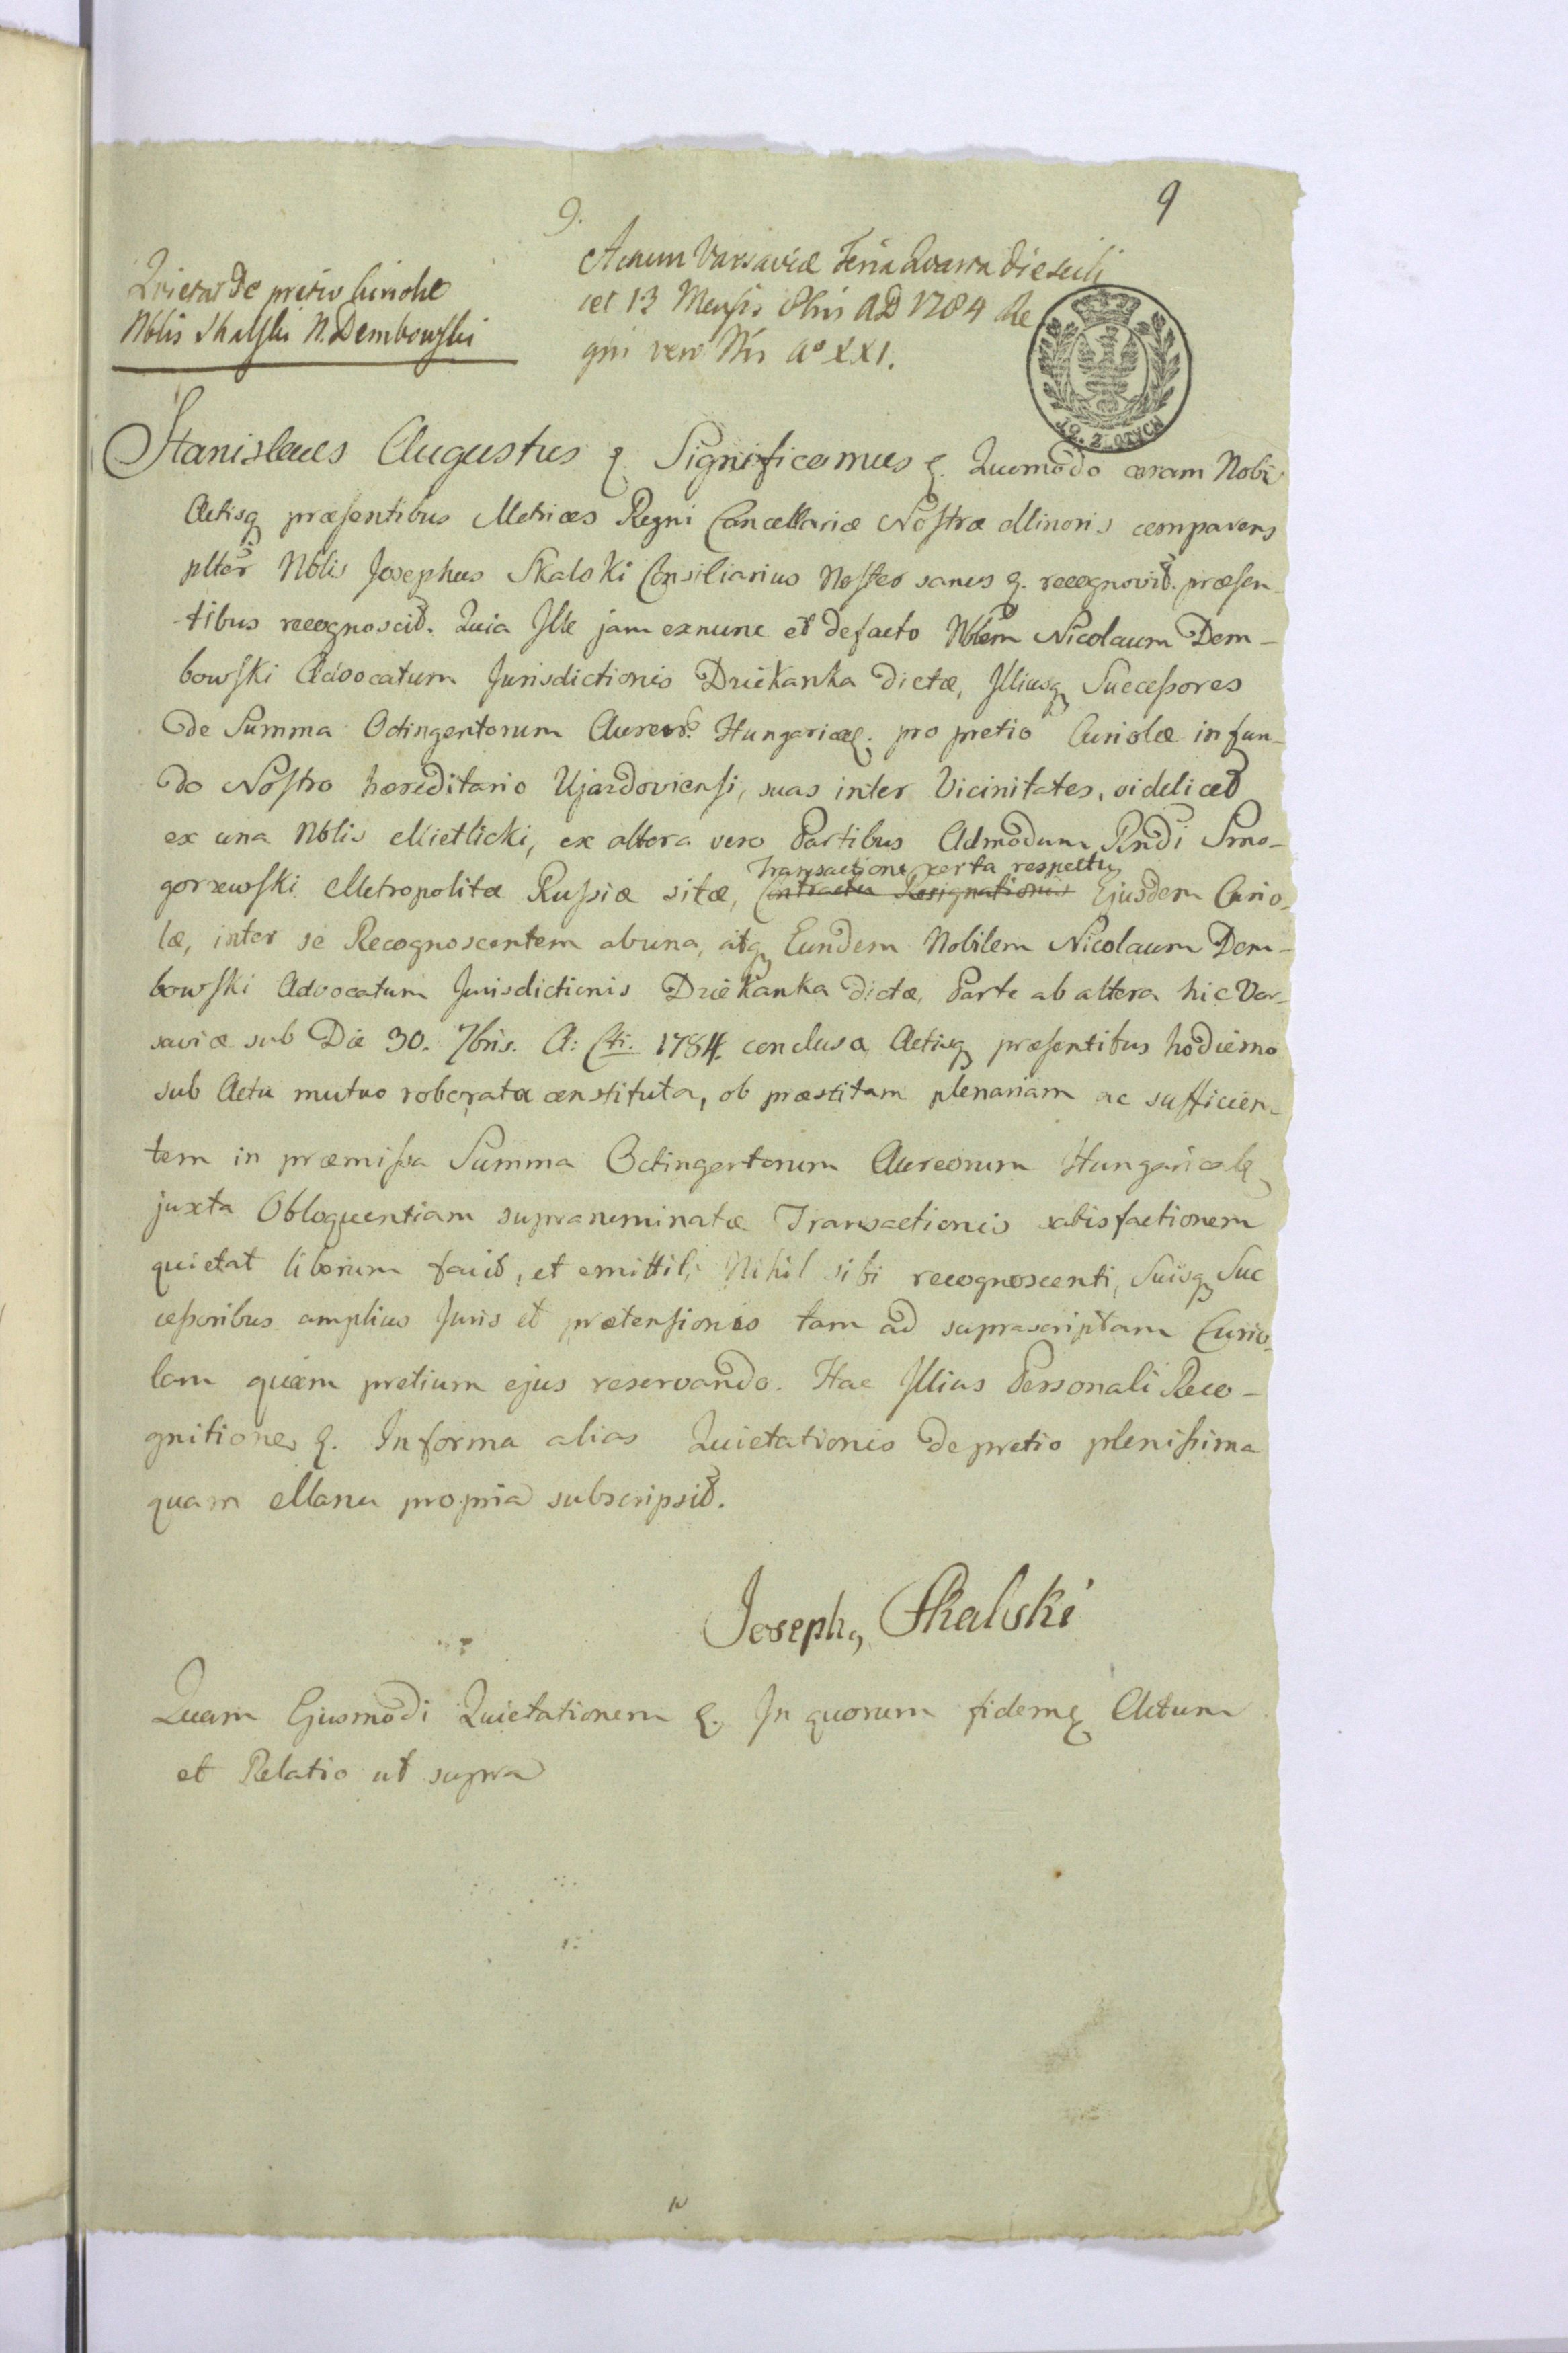 9.
9
Quietat de pretio Curiolae
Nblis Skalski N. Dembowski
Actum Varsaviae Feria Quarta die scili
cet 13 Mensis 8bris AD 1784 Re
gni vero Nri A° XXI.
10. ZŁOTYCH
Stanislaus Augustus &. Significamus &. Quomodo coram Nobis
Actisq praesentibus Metrices Regni Cancellariae Nostrae Minoris comparens
plter Nblis Josephus Skalski Consiliarius Noster sanus &. recognovit. praesen-
tibus recognoscit. Quia Ille jam exnunc et defacto Nblem Nicolaum Dem-
bowski Advocatum Jurisdictionis Dziekanka dictae, Illiusq Successores
de Summa Octingentorum Aureor. Hungarical. pro pretio Curiolae in fun-
do Nostro haereditario Ujazdoviensi, suas inter Vicinitates, videlicet
ex una Nblis Mietlicki, ex altera vero Partibus Admodum Rndi Smo-
Transactione certa respectu
gorzewski Metropolitae Russiae sitae, Contractu Resignationis Ejusdem Curio-
lae, inter se Recognoscentem abuna, atq Eundem Nobilem Nicolaum Dem-
bowski Advocatum Jurisdictionis Dziekanka dictae, Parte ab altera hic Var-
saviae sub Die 30. 7bris. A: Cti. 1784. conclusa Actisq praesentibus hodierno
sub Actu mutuo roborata constituta, ob praestitam plenariam ac sufficien-
tem in praemissa Summa Octingentorum Aureorum Hungarical
juxta Obloquentiam supranominatae Transactionis satisfactionem
quietat liberum facit, et emittit, Nihil sibi recognoscenti, Suisq Suc
cessoribus amplius Juris et praetensionis tam ad suprascriptam Curio-
lam quam pretium ejus reservando. Hac Illius Personali Reco-
gnitione &. In forma alias Quietationis de pretio plenissima
quam Manu propria subscripsit.
Joseph, Skalski
Quam Ejusmodi Quietationem &. In quorum fidem & Actum
et Relatio ut supra